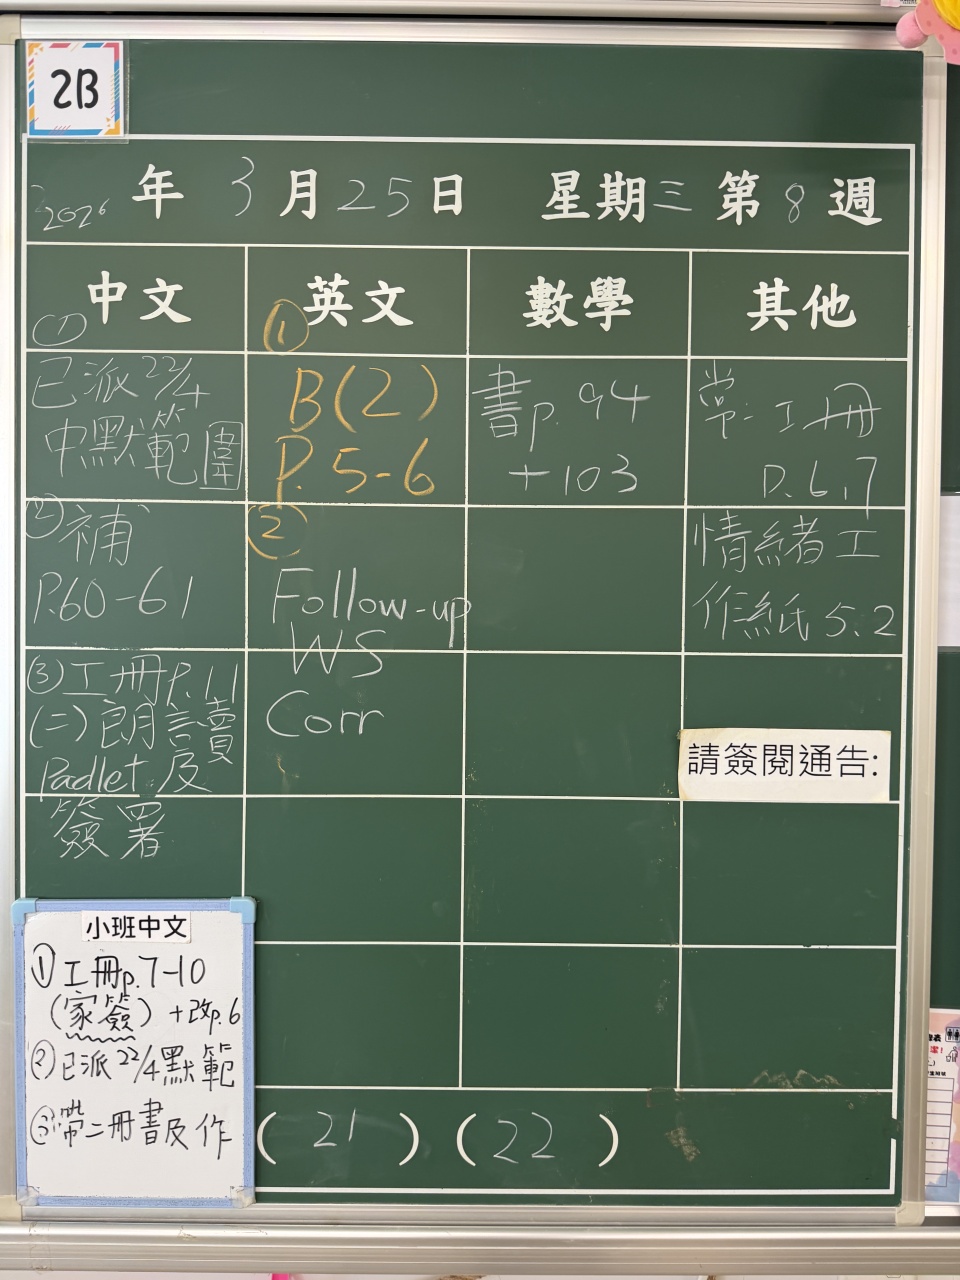 2B
2026 年 3 月 25 日 星期三 第 8 週
中文 英文 數學 其他
①
已派22/4
中默範圍
② 補
P.60-61
③工冊P.11
(二)朗讀
Padlet及
簽署
①
B(2)
P.5-6
②
Follow-up
WS
Corr
書p.94
+103
常:工冊
p.6,7
情緒工
作紙5.2
請簽閱通告:
小班中文
①工冊p.7-10
(家簽)+改p.6
②已派22/4默範
③帶二冊書及作
( 21 ) ( 22 )